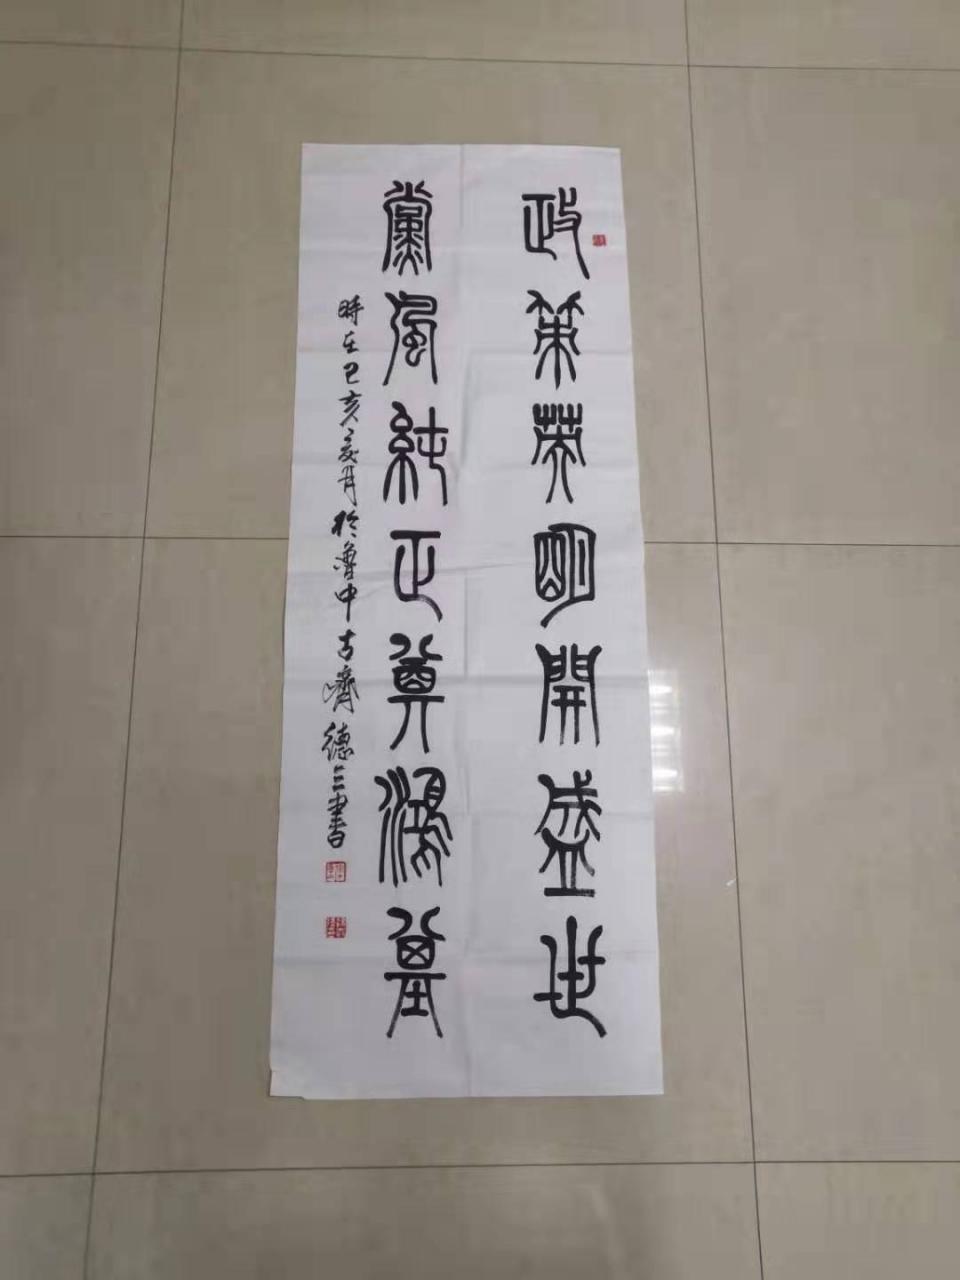 政策英明開盛世
黨風純正奠鴻基
時在己亥夏月於魯中古齊德三書